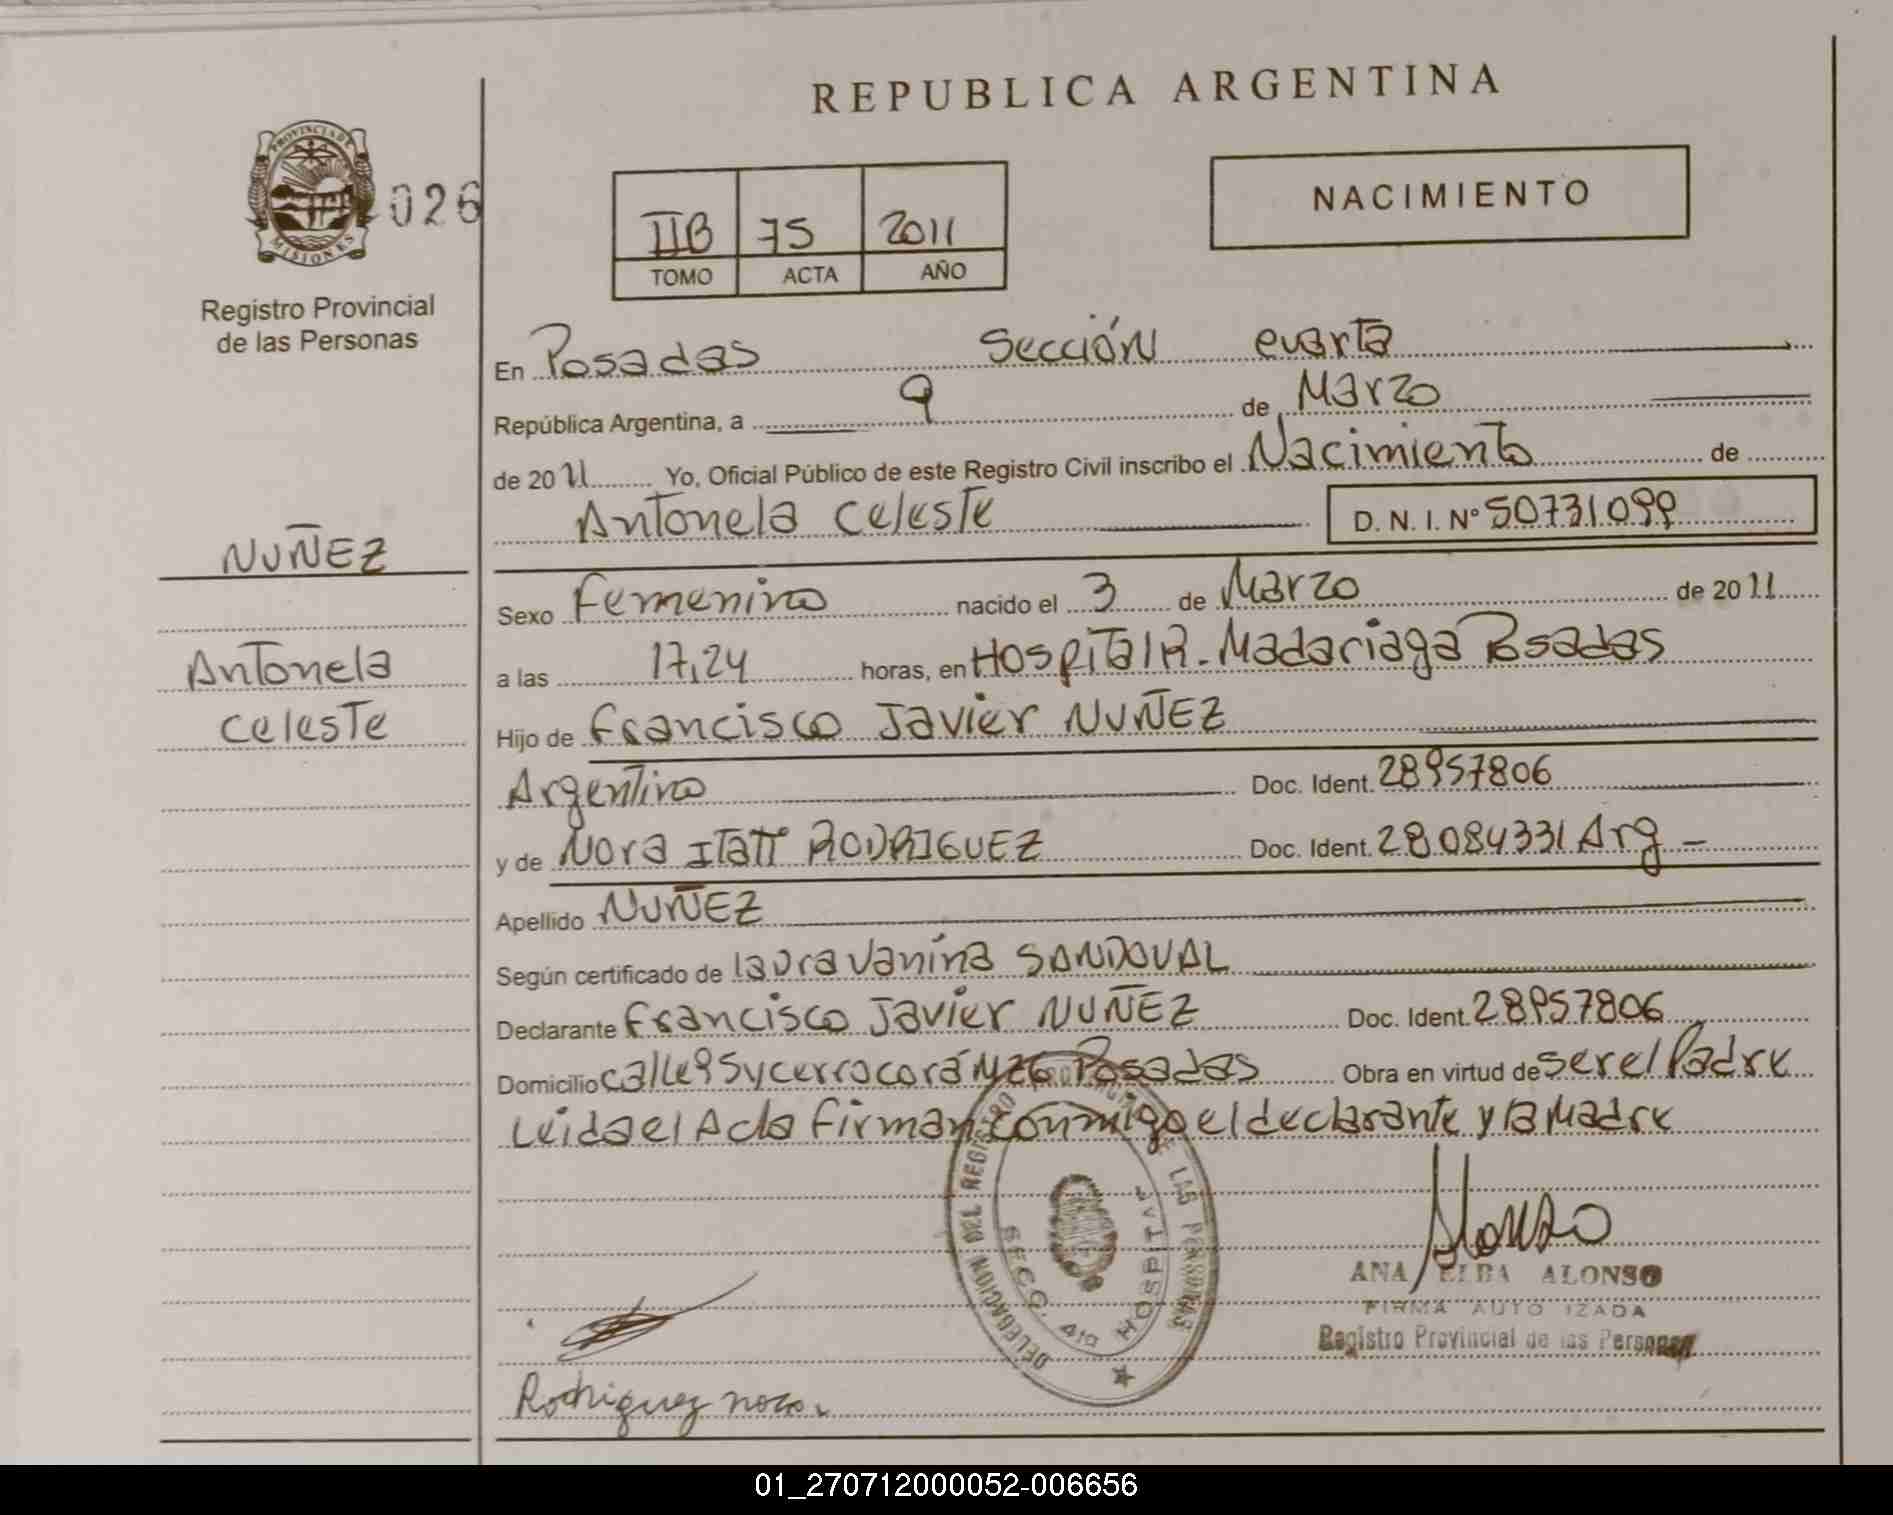 REPUBLICA ARGENTINA
PROVINCIA DE
MISIONES
026
Registro Provincial
de las Personas
IIB 75 2011
TOMO ACTA AÑO
NACIMIENTO
En Posadas Sección cuarta
República Argentina, a 9 de Marzo
de 2011 Yo, Oficial Público de este Registro Civil inscribo el Nacimiento de
Antonela Celeste D. N. I. Nº 50731099
NUÑEZ
Antonela
Celeste
Sexo Femenino nacido el 3 de Marzo de 2011
a las 17,24 horas, en Hospital R. Madariaga Posadas
Hijo de Francisco Javier NUÑEZ
Argentino Doc. Ident. 28957806
y de Nora Itatí RODRIGUEZ Doc. Ident. 28084331 Arg -
Apellido NUÑEZ
Según certificado de Laura Vanina SANDOVAL
Declarante Francisco Javier NUÑEZ Doc. Ident. 28957806
Domicilio calle 95 y cerro corá Mz6 Posadas Obra en virtud de ser el Padre
Leida el Acta firman conmigo el declarante y la Madre
DELEGACION DEL REGISTRO DE LAS PERSONAS
SECC. 4ta HOSPITAL
Alonso
ANA ELBA ALONSO
FIRMA AUTO IZADA
Registro Provincial de las Personas
Rodriguez nora
01_270712000052-006656